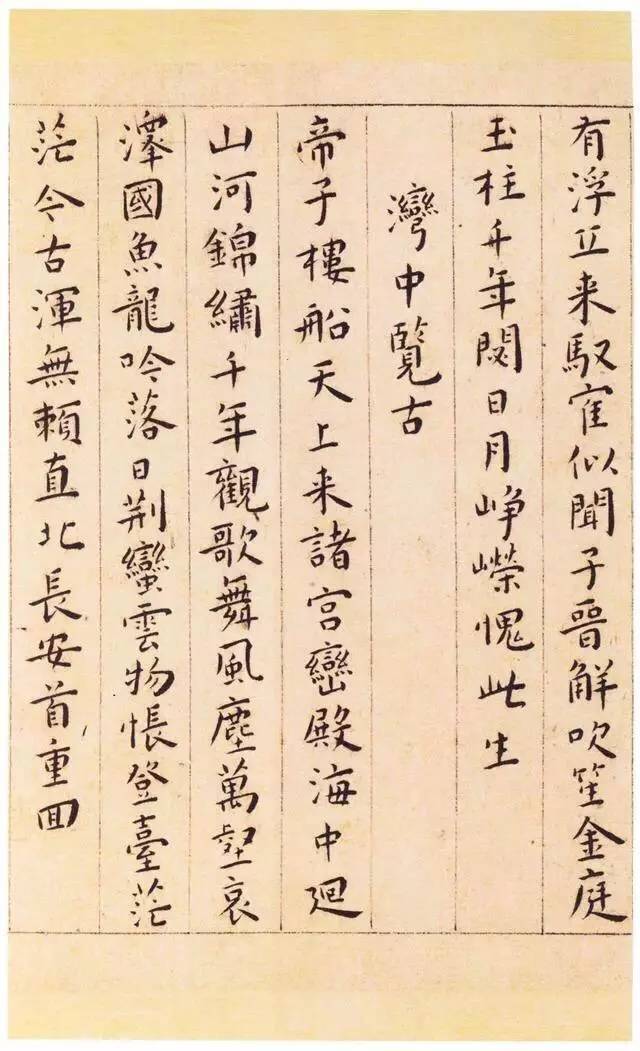 有浮丘来馭寉似聞子晉解吹笙金庭
玉柱千年閟日月崢嶸愧此生
灣中覽古
帝子樓船天上来諸宮巒殿海中廻
山河錦繡千年觀歌舞風塵萬壑哀
澤國魚龍吟落日荆蠻雲物悵登臺茫
茫今古渾無頼直北長安首重囬